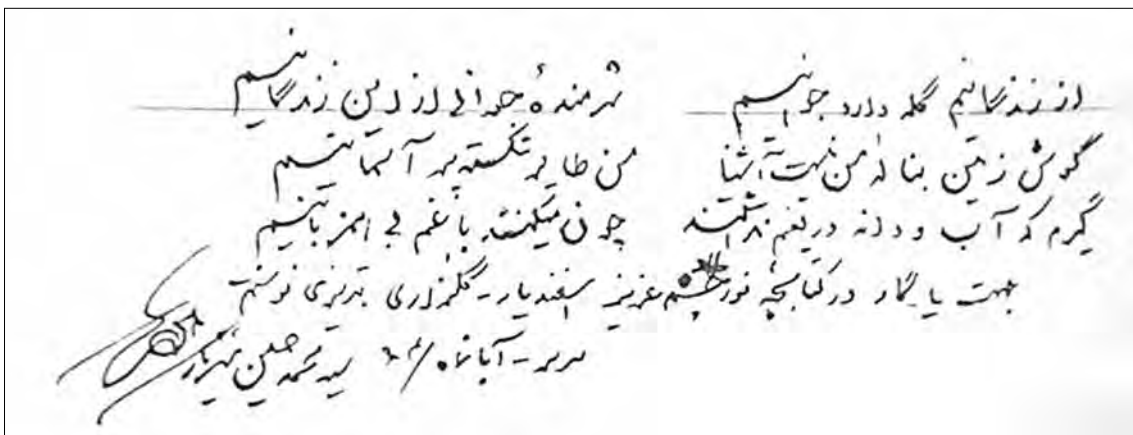 از زندگانیم گله دارد جوانیم    شرمندهٔ جوانی از این زندگانیم
گوش زمین بنالهٔ من نیست آشنا    من طایر شکسته پر آسمانیم
گیرم که آب و دانه دریغم نداشتند    چون میکنند با غم بی همزبانیم
جهت یادگار در کتابچه نورچشم عزیز اسفندیار - گلزاری تبریزی نوشتم
آبانماه سید محمد حسین شهریار